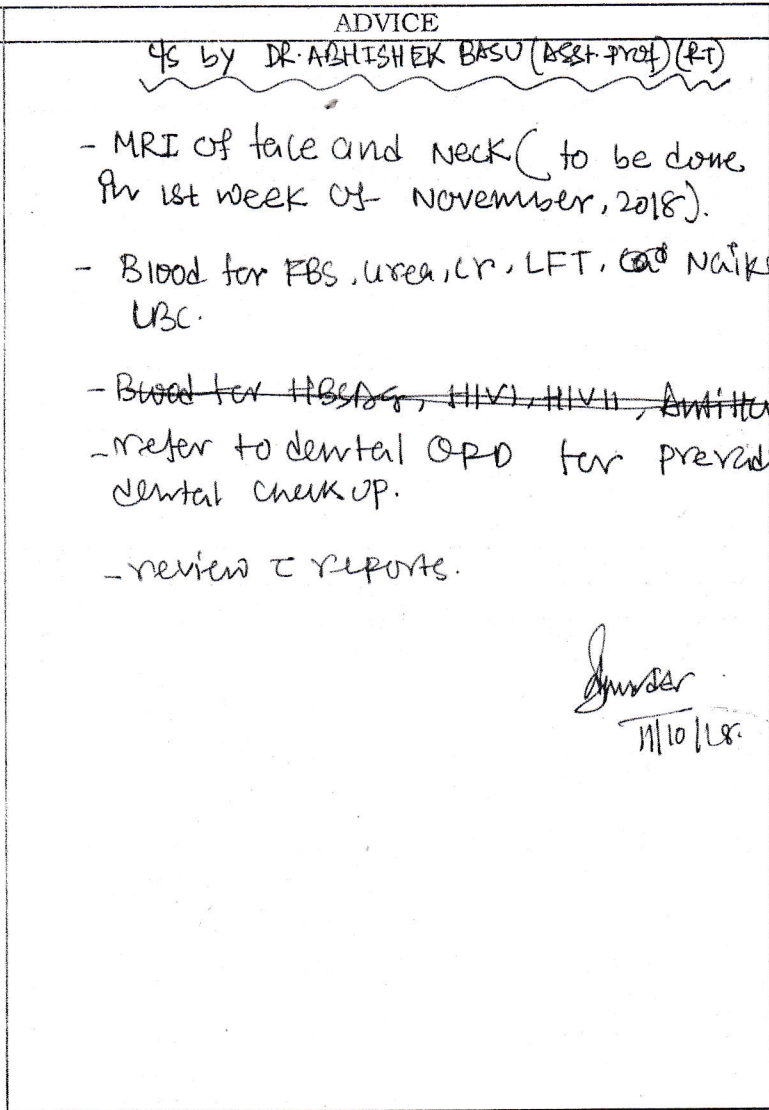 ADVICE
c/s by DR. ABHISHEK BASU (Asst. Prof) (RT)
- MRI of face and Neck ( to be done
in 1st week of November, 2018).
- Blood for FBS, urea, cr, LFT, Naik
CBC.
- Blood for HBSAG, HIVI, HIVII, AntiHC
- refer to dental OPD for
dental check up.
- review c reports.
11/10/18.